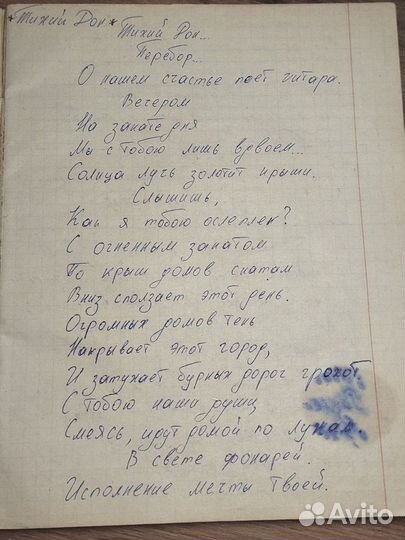 *Тихий Дон*
Тихий Дон...
Перебор...
О нашем счастье поёт гитара.
Вечером
На закате дня
Мы с тобою лишь вдвоём...
Солнца лучь золотит крыши.
Слышишь,
Как я тобою ослеплен?
С огненным закатом
По крыш домов скатам
Вниз сползает этот день.
Огромных домов тень
Накрывает этот город,
И затухает бурных дорог грохот.
С тобою наши души
Смеясь, идут домой по лужам.
В свете фонарей.
Исполнение мечты твоей.
Avito